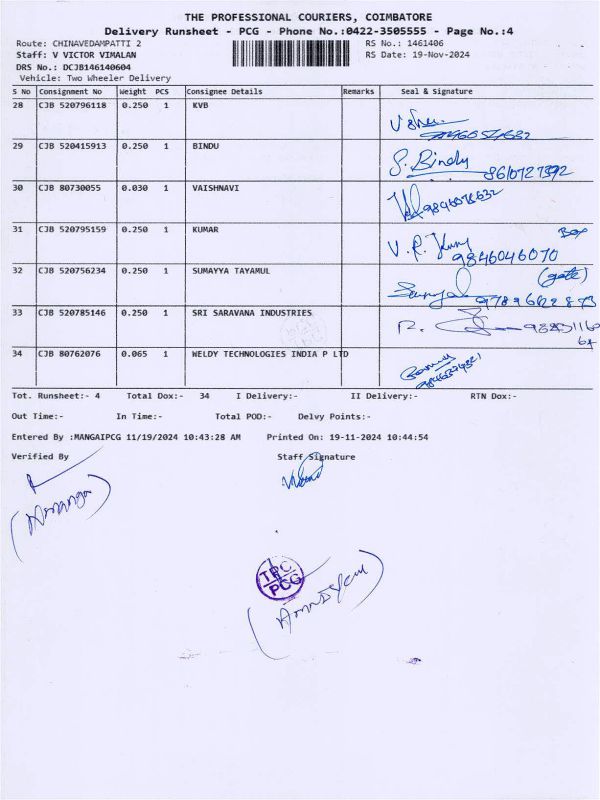 THE PROFESSIONAL COURIERS, COIMBATORE
Delivery Runsheet - PCG - Phone No.:0422-3505555 - Page No.:4
Route: CHINAVEDAMPATTI 2 RS No.: 1461406
Staff: V VICTOR VIMALAN RS Date: 19-Nov-2024
DRS No.: DCJB146140604
Vehicle: Two Wheeler Delivery
S No Consignment No Weight PCS Consignee Details Remarks Seal & Signature
28 CJB 520796118 0.250 1 KVB
29 CJB 520415913 0.250 1 BINDU
S. Bindu 8610727392
30 CJB 80730055 0.030 1 VAISHNAVI
31 CJB 520795159 0.250 1 KUMAR
Box
9846046070
32 CJB 520756234 0.250 1 SUMAYYA TAYAMUL
(gate)
33 CJB 520785146 0.250 1 SRI SARAVANA INDUSTRIES
34 CJB 80762076 0.065 1 WELDY TECHNOLOGIES INDIA P LTD
Tot. Runsheet:- 4 Total Dox:- 34 I Delivery:- II Delivery:- RTN Dox:-
Out Time:- In Time:- Total POD:- Delvy Points:-
Entered By :MANGAIPCG 11/19/2024 10:43:28 AM Printed On: 19-11-2024 10:44:54
Verified By Staff Signature
TPC
PCG